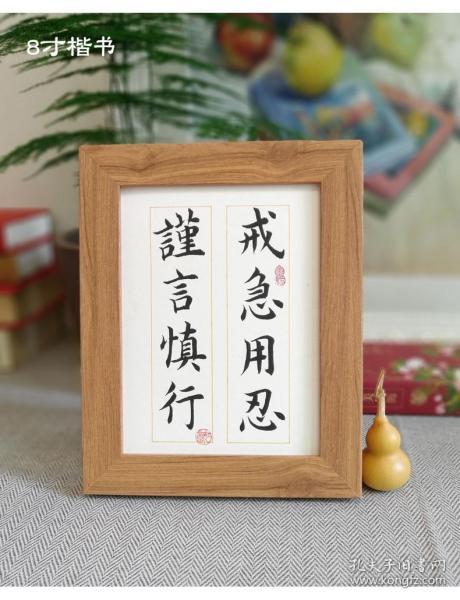 8寸楷书
戒急用忍
謹言慎行
孔夫子旧书网
www.kongfz.com